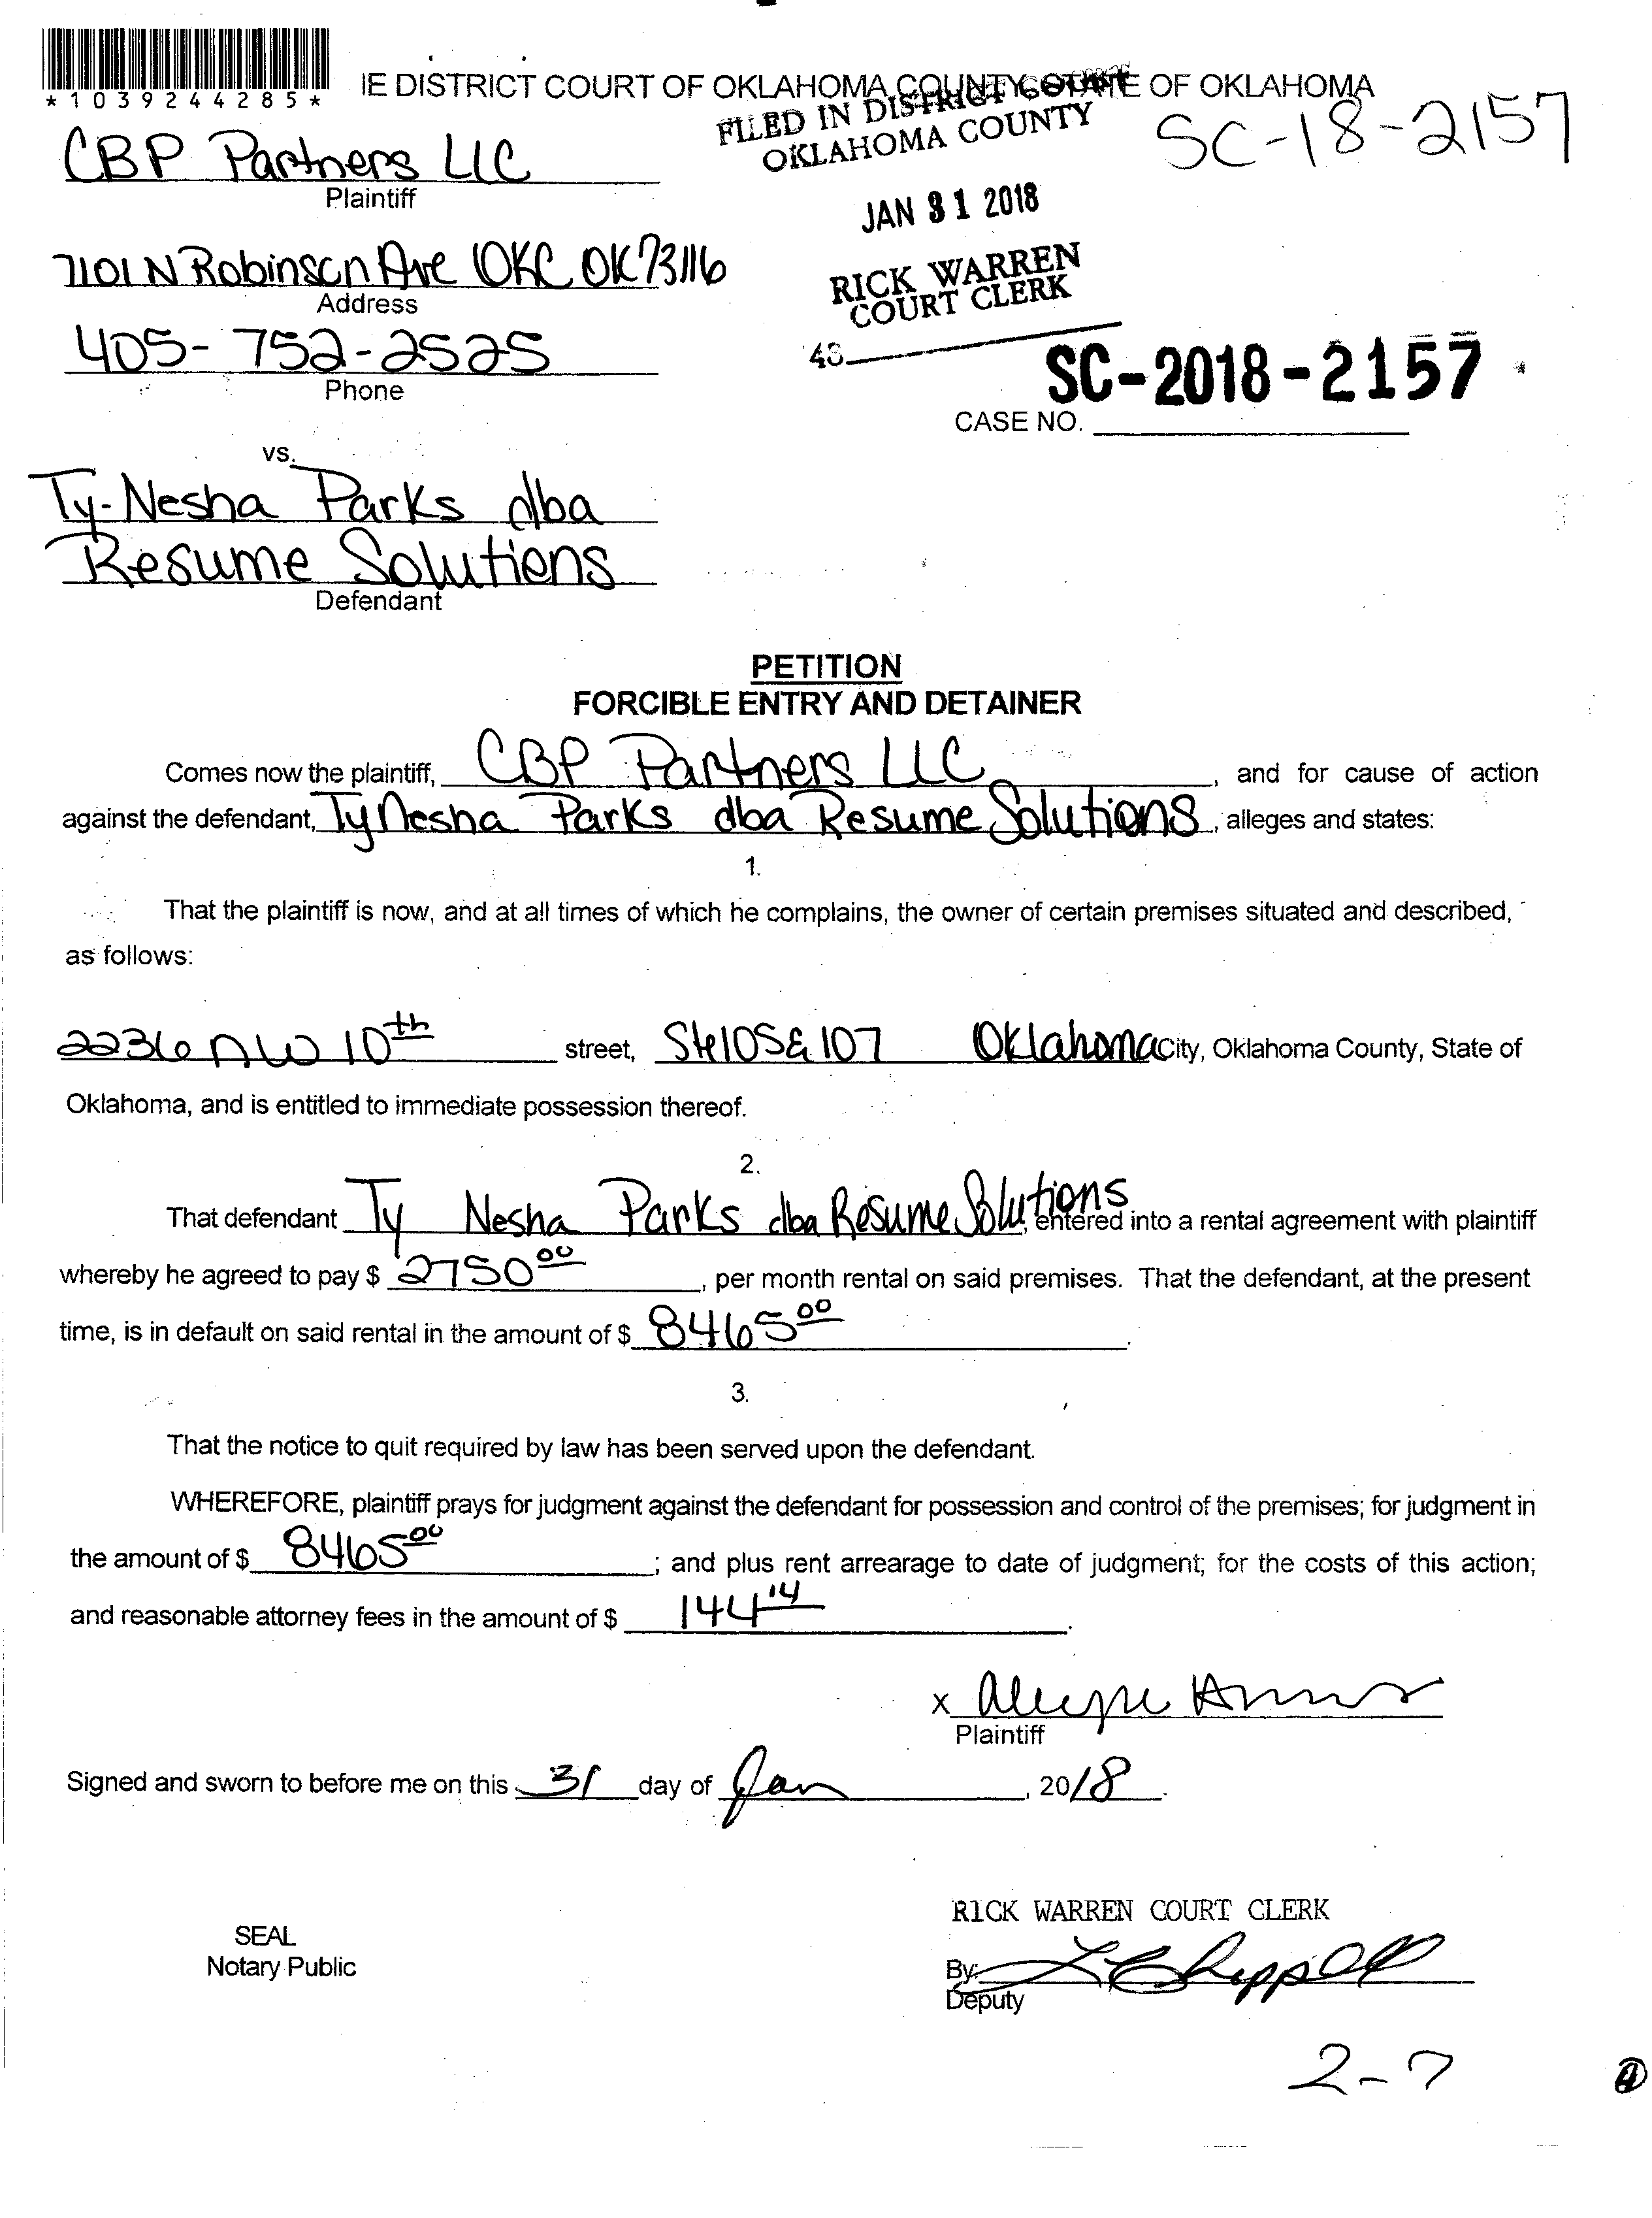 *1039244285*
IE DISTRICT COURT OF OKLAHOMA COUNTY, STATE OF OKLAHOMA
FILED IN DISTRICT COURT
OKLAHOMA COUNTY
SC-18-2157
CBP Partners LLC
Plaintiff
JAN 31 2018
7101 N Robinson Ave OKC OK 73116
Address
RICK WARREN
COURT CLERK
405-752-2525
Phone
48
SC-2018-2157
CASE NO.
vs.
Ty-Nesha Parks dba
Resume Solutions
Defendant
PETITION
FORCIBLE ENTRY AND DETAINER
Comes now the plaintiff, CBP Partners LLC, and for cause of action
against the defendant, TyNesha Parks dba Resume Solutions, alleges and states:
1.
That the plaintiff is now, and at all times of which he complains, the owner of certain premises situated and described,
as follows:
2236 NW 10th street, Ste 105 & 107 Oklahoma City, Oklahoma County, State of
Oklahoma, and is entitled to immediate possession thereof.
2.
That defendant Ty Nesha Parks dba Resume Solutions, entered into a rental agreement with plaintiff
whereby he agreed to pay $ 2750 00, per month rental on said premises. That the defendant, at the present
time, is in default on said rental in the amount of $ 8465 00.
3.
That the notice to quit required by law has been served upon the defendant.
WHEREFORE, plaintiff prays for judgment against the defendant for possession and control of the premises; for judgment in
the amount of $ 8465 00; and plus rent arrearage to date of judgment; for the costs of this action;
and reasonable attorney fees in the amount of $ 144 14.
x
Plaintiff
Signed and sworn to before me on this 31 day of Jan, 2018.
RICK WARREN COURT CLERK
SEAL
Notary Public
By:
Deputy
2-7
4